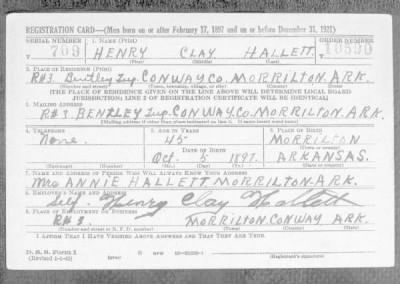 REGISTRATION CARD—(Men born on or after February 17, 1897 and on or before December 31, 1921)
SERIAL NUMBER 1. NAME (Print) ORDER NUMBER
T 709 HENRY CLAY HALLETT
(First) (Middle) (Last)
2. PLACE OF RESIDENCE (Print)
R#3. Bentley Twp. CONWAY CO. MORRILTON. ARK.
(Number and street) (Town, township, village, or city) (County) (State)
[THE PLACE OF RESIDENCE GIVEN ON THE LINE ABOVE WILL DETERMINE LOCAL BOARD
JURISDICTION; LINE 2 OF REGISTRATION CERTIFICATE WILL BE IDENTICAL]
3. MAILING ADDRESS
R#3. BENTLEY Twp. CONWAY. CO. MORRILTON. ARK.
[Mailing address if other than place indicated on line 2. If same insert word same]
4. TELEPHONE 5. AGE IN YEARS 6. PLACE OF BIRTH
None. 45 MORRILTON
DATE OF BIRTH (Town or county)
Oct. 5 1897. ARKANSAS.
(Exchange) (Number) (Mo.) (Day) (Yr.) (State or country)
7. NAME AND ADDRESS OF PERSON WHO WILL ALWAYS KNOW YOUR ADDRESS
Mrs ANNIE HALLETT. MORRILTON. ARK.
8. EMPLOYER'S NAME AND ADDRESS
Self. Henry Clay Hallett
9. PLACE OF EMPLOYMENT OR BUSINESS
R#3. MORRILTON. CONWAY ARK.
(Number and street or R. F. D. number) (Town) (County) (State)
I AFFIRM THAT I HAVE VERIFIED ABOVE ANSWERS AND THAT THEY ARE TRUE.
D. S. S. Form 1
(Revised 1-1-42) (over) (Registrant's signature)